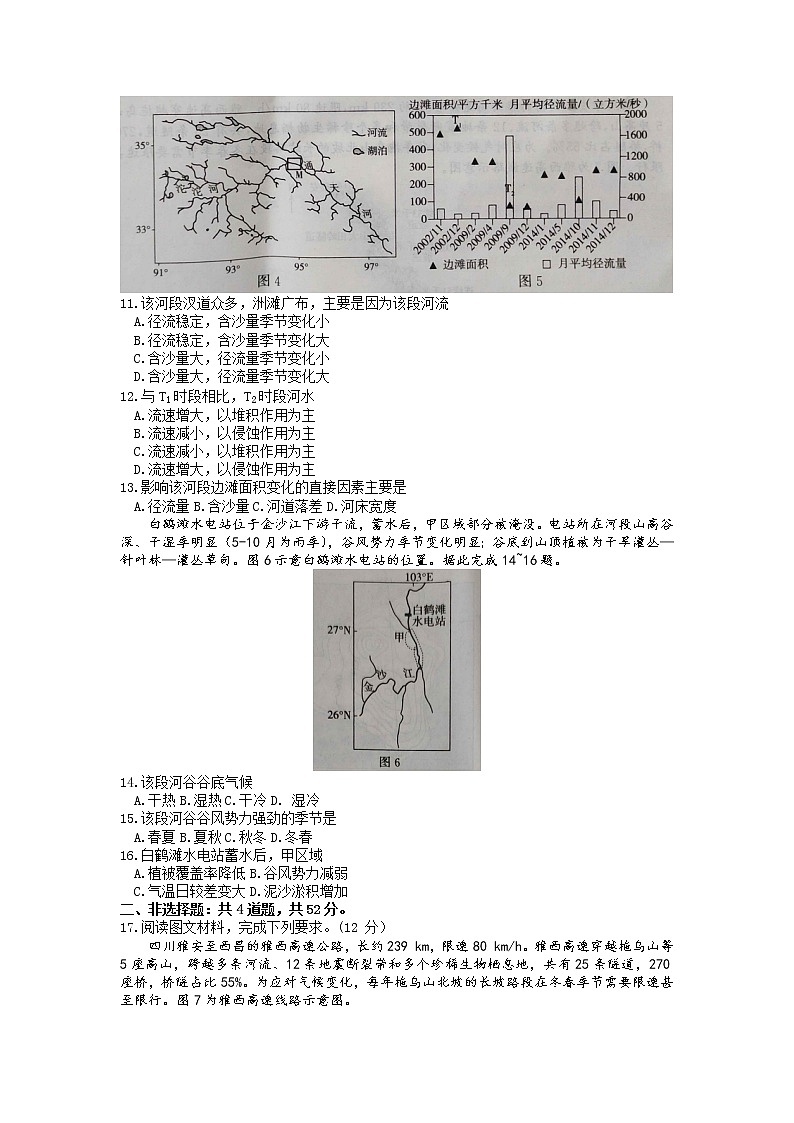 边滩面积/平方千米 月平均径流量/(立方米/秒)
600
500
400
300
200
100
0
2000
1600
1200
800
400
0
T₁
T₂
2002/11
2002/12
2009/2
2009/4
2009/9
2009/12
2014/1
2014/5
2014/10
2014/11
2014/12
▲ 边滩面积 □ 月平均径流量
图5
河流
湖泊
35°
33°
91°
93°
95°
97°
沱沱河
通天河
M
图4
11.该河段汊道众多，洲滩广布，主要是因为该段河流
A.径流稳定，含沙量季节变化小
B.径流稳定，含沙量季节变化大
C.含沙量大，径流量季节变化小
D.含沙量大，径流量季节变化大
12.与T₁时段相比，T₂时段河水
A.流速增大，以堆积作用为主
B.流速减小，以侵蚀作用为主
C.流速减小，以堆积作用为主
D.流速增大，以侵蚀作用为主
13.影响该河段边滩面积变化的直接因素主要是
A.径流量 B.含沙量 C.河道落差 D.河床宽度
白鹤滩水电站位于金沙江下游干流，蓄水后，甲区域部分被淹没。电站所在河段山高谷
深、干湿季明显（5-10月为雨季），谷风势力季节变化明显；谷底到山顶植被为干旱灌丛—
针叶林—灌丛草甸。图6示意白鹤滩水电站的位置。据此完成14~16题。
103°E
白鹤滩
水电站
27°N
甲
金沙江
26°N
图6
14.该段河谷谷底气候
A.干热 B.湿热 C.干冷 D. 湿冷
15.该段河谷谷风势力强劲的季节是
A.春夏 B.夏秋 C.秋冬 D.冬春
16.白鹤滩水电站蓄水后，甲区域
A.植被覆盖率降低 B.谷风势力减弱
C.气温日较差变大 D.泥沙淤积增加
二、非选择题：共4道题，共52分。
17.阅读图文材料，完成下列要求。(12 分）
四川雅安至西昌的雅西高速公路，长约239 km，限速80 km/h。雅西高速穿越拖乌山等
5座高山，跨越多条河流、12条地震断裂带和多个珍稀生物栖息地，共有25条隧道，270
座桥，桥隧占比55%。为应对气候变化，每年拖乌山北坡的长坡路段在冬春季节需要限速甚
至限行。图7为雅西高速线路示意图。